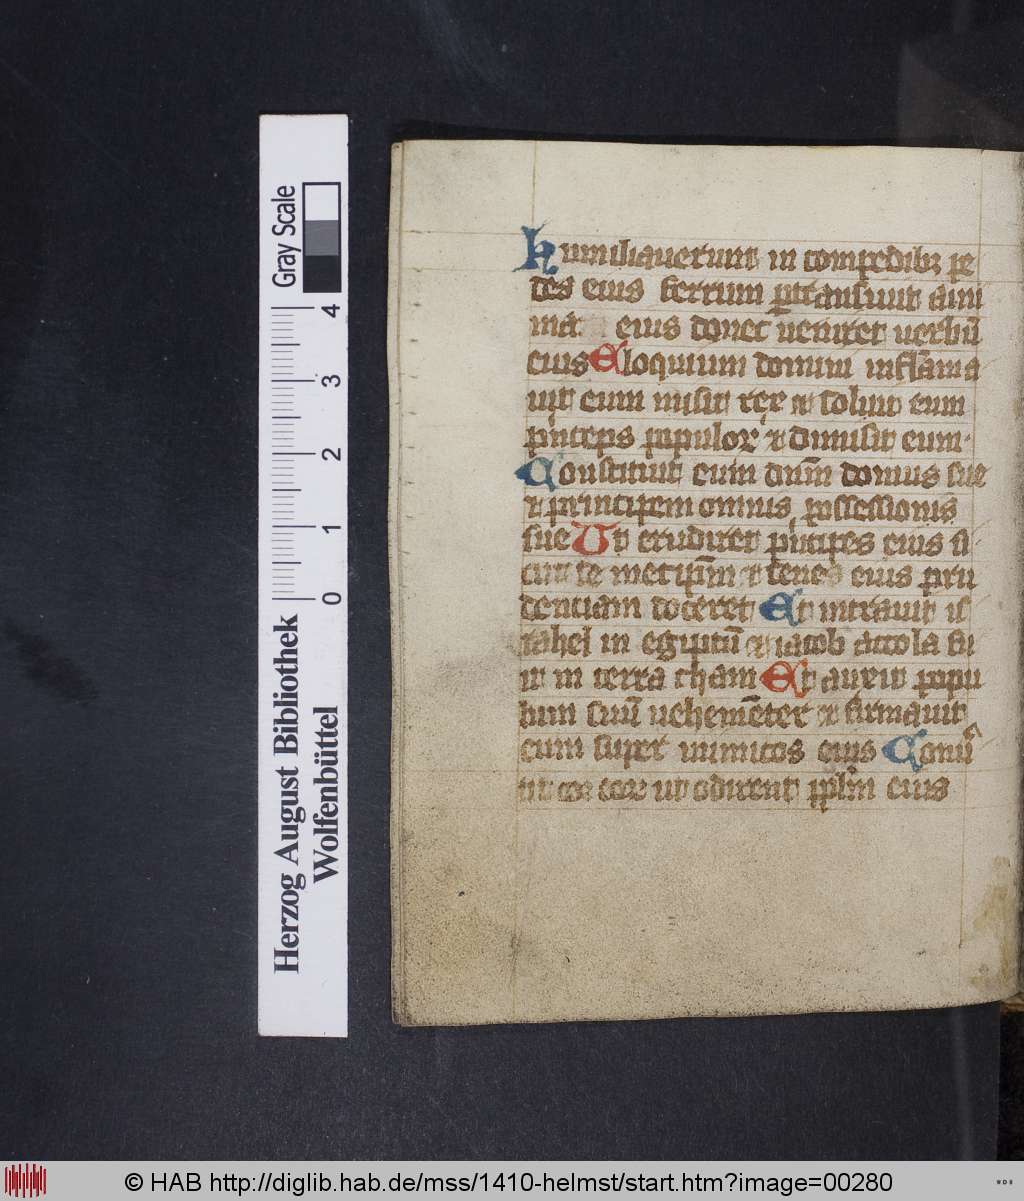 Humiliauerunt in compedibꝫ pe
des eius ferrum ꝑtransiuit ani
ma eius donec ueniret uerbū
eius Eloquium domini inflāma
uit eum misit rex ⁊ soluit eum
pͥnceps populoꝝ ⁊ dimisit eum·
Constituit eum dn̄m domus sue
⁊ principem omnis possessionis
sue Ut erudiret pͥncipes eius si
cut se metip̄m ⁊ senes eius pru
dentiam doceret Et intrauit is
rahel in egiptū ⁊ iacob accola fu
it in terra cham Et auxit popu
lum suū uehemēter ⁊ firmauit
eum super inimicos eius Conuͥ
tit cor eoꝝ ut odirent pplm̄ eius
Gray Scale
0 1 2 3 4
Herzog August Bibliothek
Wolfenbüttel
© HAB http://diglib.hab.de/mss/1410-helmst/start.htm?image=00280